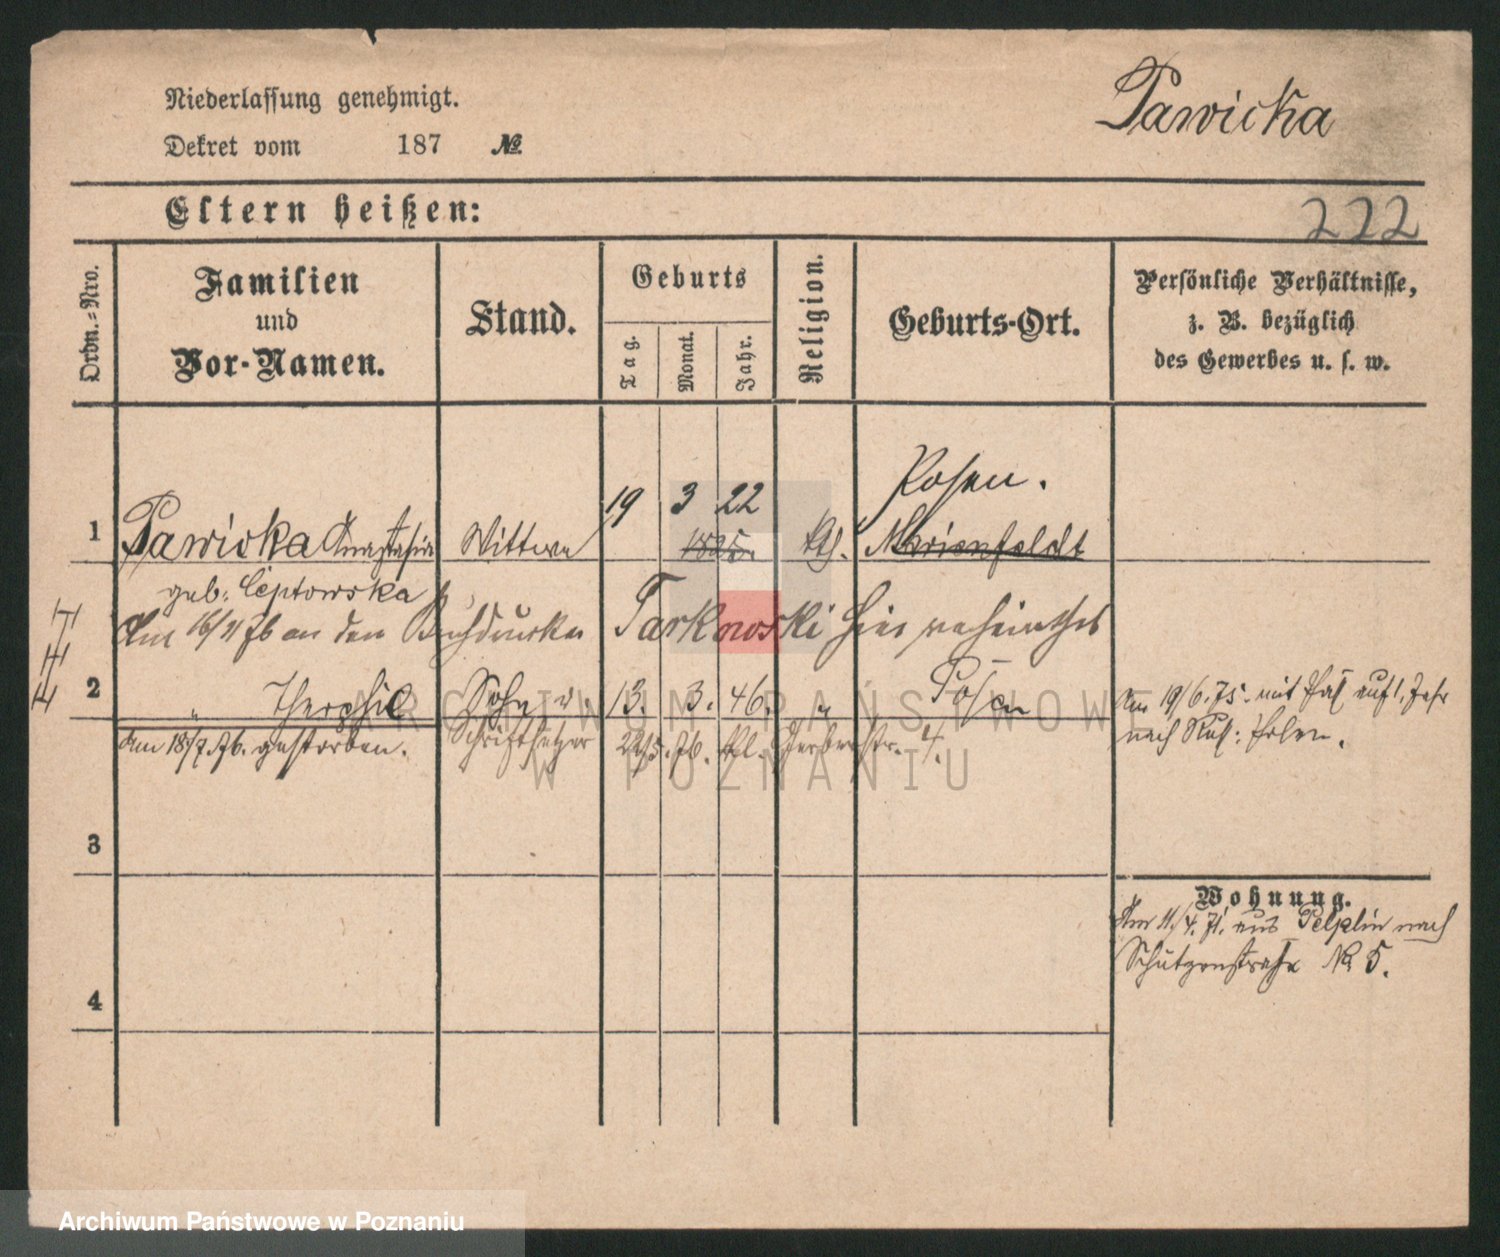 Niederlassung genehmigt.
Dekret vom 187 №
Pawicka
Eltern heißen:
222
Ordn.=Nro.
Familien
und
Vor-Namen.
Stand.
Geburts
Tag.
Monat.
Jahr.
Religion.
Geburts-Ort.
Persönliche Verhältnisse,
z. B. bezüglich
des Gewerbes u. s. w.
Posen.
19 3 22
1 Pawicka Anastasia Wittwe 1825. kth. Marienfeldt
geb: Ceptowska
Am 16/11 76 an den Buchdrucker Tarknoski hier verheirathet
2 " Theophil Sohn u. 13. 3. 46. " Posen
Am 19/6. 75. mit Paß auf 1. Jahr
nach Ruß: Polen.
Am 18/7. 76. gestorben. Schriftsetzer 22/5. 76. Gerberstr. 4.
3
Wohnung.
Am 11/4. 71. aus Pelplin nach
Schützenstraße № 5.
4
ARCHIWUM PAŃSTWOWE
W POZNANIU
Archiwum Państwowe w Poznaniu